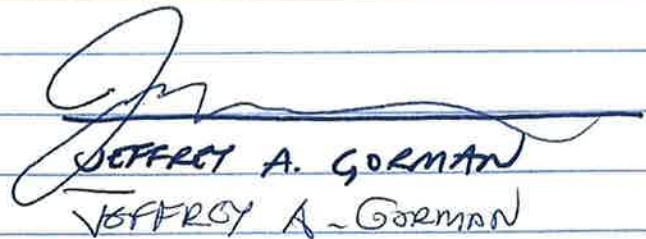 JEFFREY A. GORMAN
JEFFREY A - GORMAN